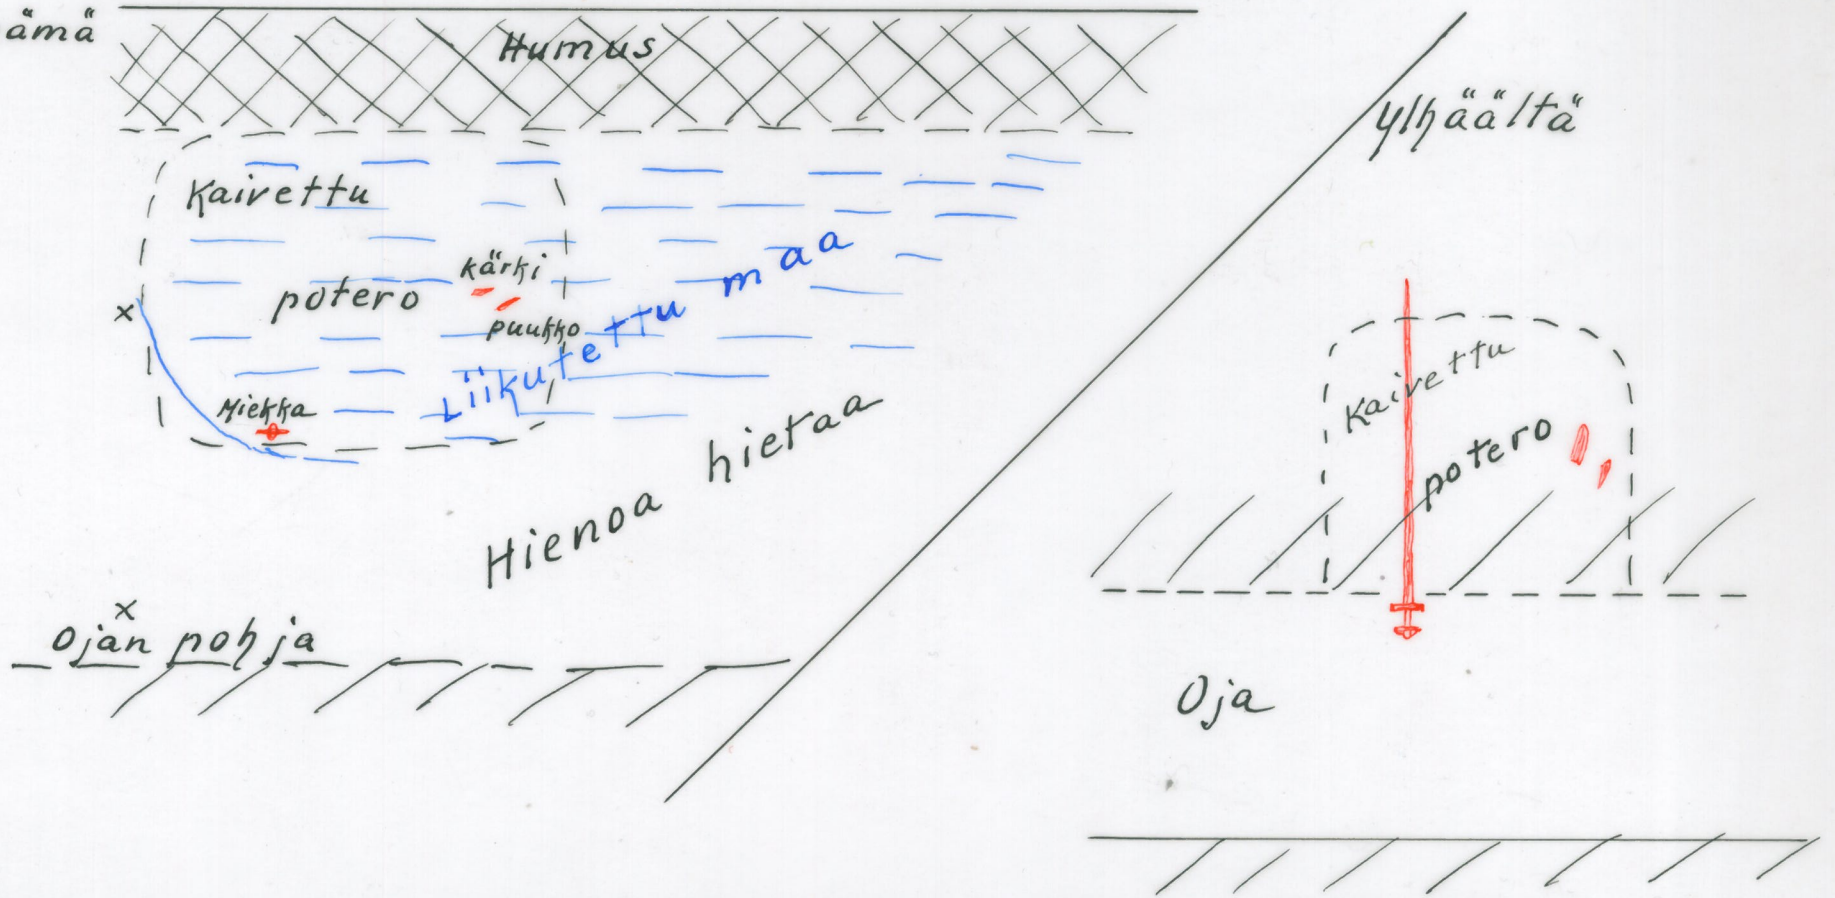 ämä
Humus
Kaivettu
potero
kärki
puukko
x
Miekka
Liikutettu maa
Hienoa hietaa
x
Ojan pohja
Ylhäältä
Kaivettu
potero
Oja